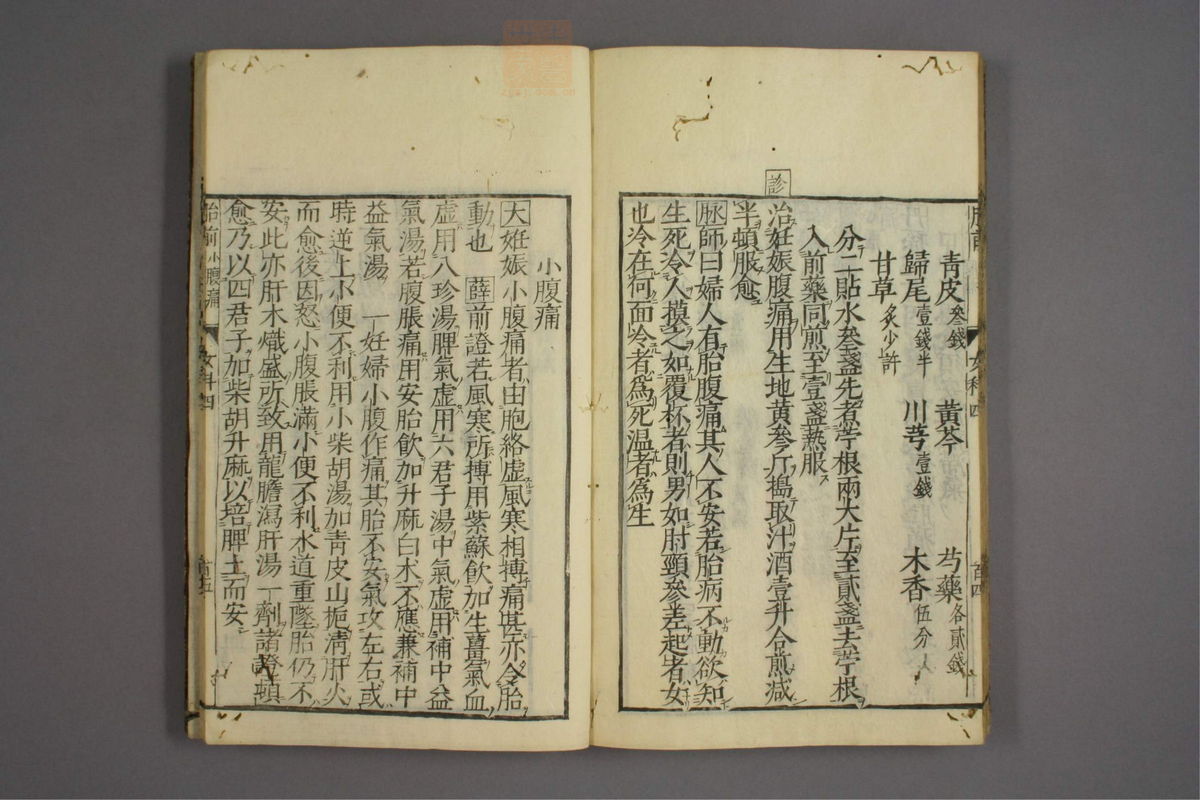 靑皮叄錢 黃芩 芍藥各貳錢
歸尾壹錢半 川芎壹錢 木香伍分
甘草炙少許
分二貼水叄盞先煮苧根兩大片至貳盞去苧根
入前藥同煎至壹盞熱服
治妊娠腹痛用生地黃叄斤搗取汁酒壹升合煎減
半頓服愈
診
脉師曰婦人有胎腹痛其人不安若胎病不動欲知
生死冷人摸之如覆杯者則男如肘頸參差起者女
也冷在何面冷者爲死温者爲生
女科四
百四
小腹痛
大妊娠小腹痛者由胞絡虛風寒相搏痛甚亦令胎
動也 薛前證若風寒所搏用紫蘇飮加生薑氣血
虛用八珍湯脾氣虛用六君子湯中氣虛用補中益
氣湯若腹脹痛用安胎飮加升麻白朮不應兼補中
益氣湯 一妊婦小腹作痛其胎不安氣攻左右或
時逆上小便不利用小柴胡湯加靑皮山梔淸肝火
而愈後因怒小腹脹滿小便不利水道重墜胎仍不
安此亦肝木熾盛所致用龍膽瀉肝湯一劑諸證頓
愈乃以四君子加柴胡升麻以培脾土而安
胎前小腹痛
女科四
百五